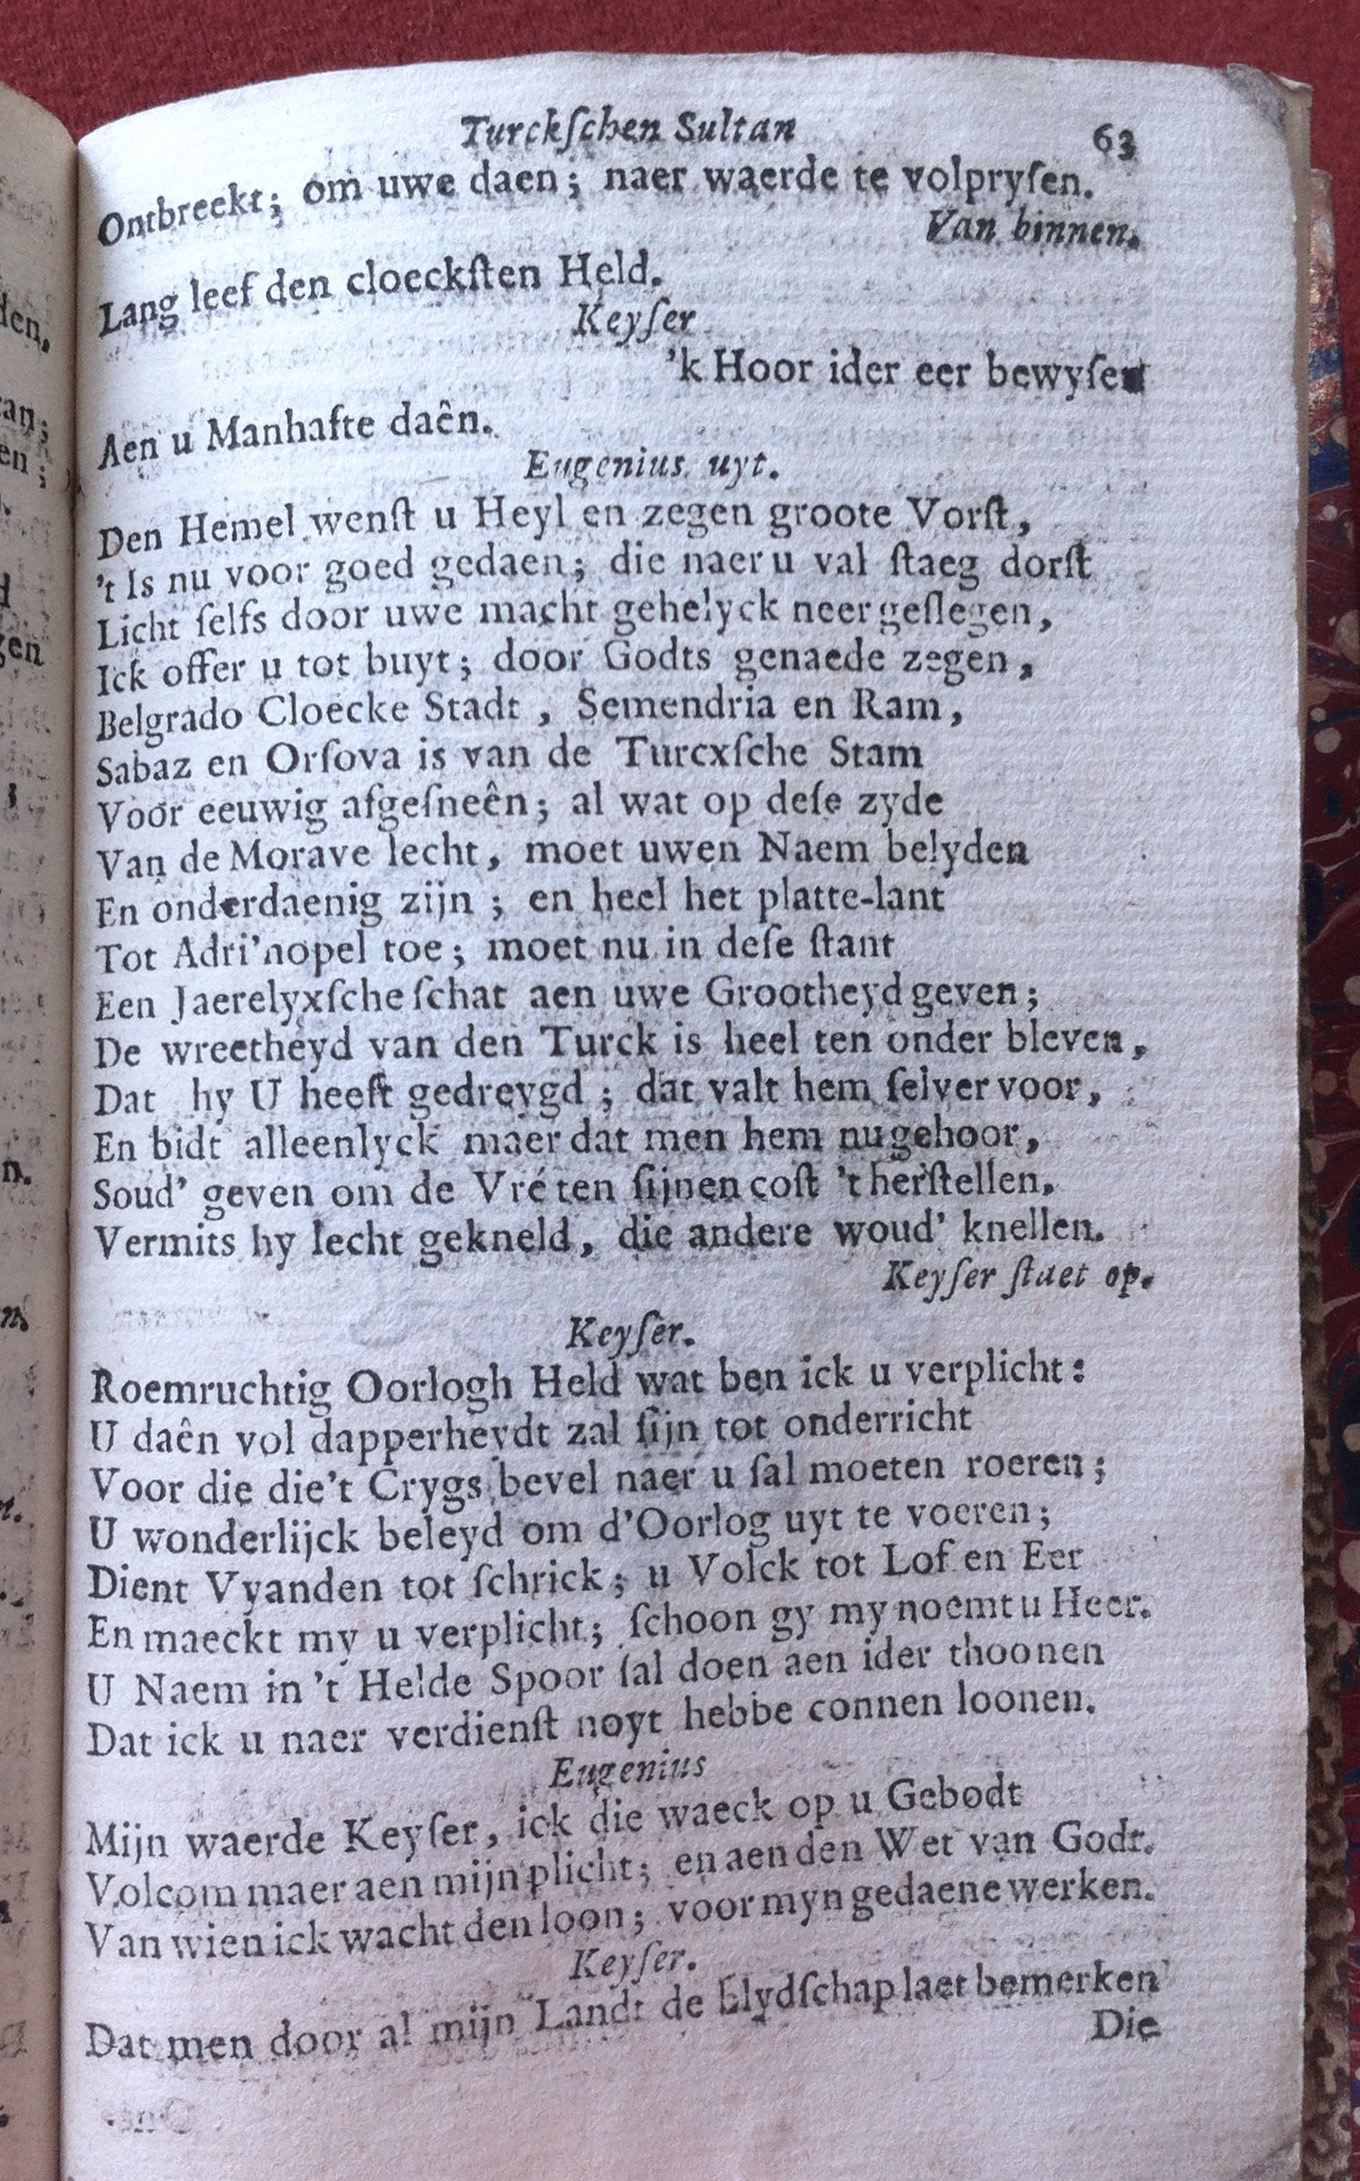 Turckſchen Sultan 63
Ontbreekt; om uwe daen; naer waerde te volpryſen.
Van binnen.
Lang leef den cloeckſten Held.
Keyſer
'k Hoor ider eer bewyſen
Aen u Manhafte daên.
Eugenius uyt.
Den Hemel wenſt u Heyl en zegen groote Vorſt,
't Is nu voor goed gedaen; die naer u val ſtaeg dorſt
Licht ſelfs door uwe macht gehelyck neer geſlegen,
Ick offer u tot buyt; door Godts genaede zegen,
Belgrado Cloecke Stadt, Semendria en Ram,
Sabaz en Orſova is van de Turcxſche Stam
Voor eeuwig afgeſneên; al wat op deſe zyde
Van de Morave lecht, moet uwen Naem belyden
En onderdaenig zijn; en heel het platte-lant
Tot Adri'nopel toe; moet nu in deſe ſtant
Een Jaerelyxſche ſchat aen uwe Grootheyd geven;
De wreetheyd van den Turck is heel ten onder bleven,
Dat hy U heeft gedreygd; dat valt hem ſelver voor,
En bidt alleenlyck maer dat men hem nu gehoor,
Soud' geven om de Vré ten ſijnen coſt 't herſtellen.
Vermits hy lecht gekneld, die andere woud' knellen.
Keyſer ſtaet op.
Keyſer.
Roemruchtig Oorlogh Held wat ben ick u verplicht:
U daên vol dapperheydt zal ſijn tot onderricht
Voor die die't Crygs bevel naer u ſal moeten roeren;
U wonderlijck beleyd om d'Oorlog uyt te voeren;
Dient Vyanden tot ſchrick; u Volck tot Lof en Eer
En maeckt my u verplicht; ſchoon gy my noemt u Heer.
U Naem in 't Helde Spoor ſal doen aen ider thoonen
Dat ick u naer verdienſt noyt hebbe connen loonen.
Eugenius
Mijn waerde Keyſer, ick die waeck op u Gebodt
Volcom maer aen mijn plicht; en aen den Wet van Godt.
Van wien ick wacht den loon; voor myn gedaene werken.
Keyſer.
Dat men door al mijn Landt de Blydſchap laet bemerken
Die